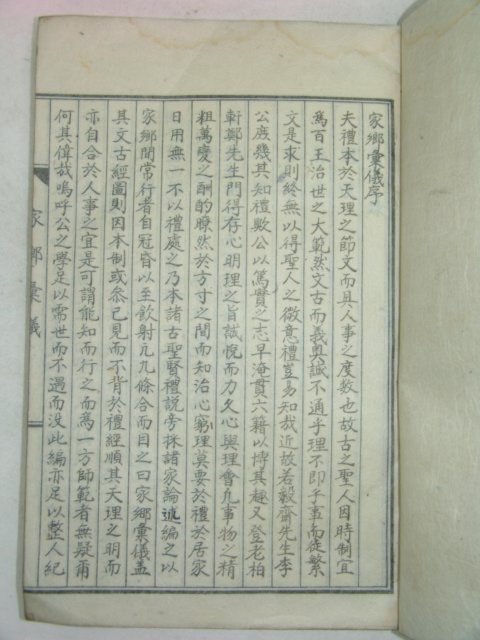 家鄉彙儀序
夫禮本於天理之節文而具人事之度數也故古之聖人因時制宜
爲百王治世之大範然文古而義奧誠不通乎理不即乎事而徒繁
文是求則終無以得聖人之微意禮豈易知哉近故若毅齋先生李
公庶幾其知禮歟公以篤實之志早淹貫六籍以博其趣又登老柏
軒鄭先生門得存心明理之旨誠悅而力久心與理會凡事物之精
粗萬變之酬酌瞭然於方寸之間而知治心窮理莫要於禮於居家
日用無一不以禮處之乃本諸古聖賢禮說旁採諸家論述編之以
家鄉間常行者自冠昏以至飲射凡九條合而目之曰家鄉彙儀盖
其文古經圖則因本制或叅己見而不背於禮經順其天理之明而
亦自合於人事之宜是可謂能知而行之而爲一方師範者無疑爾
何其偉哉嗚呼公之學足以需世而不遇而没此編亦足以整人紀
家鄉彙儀